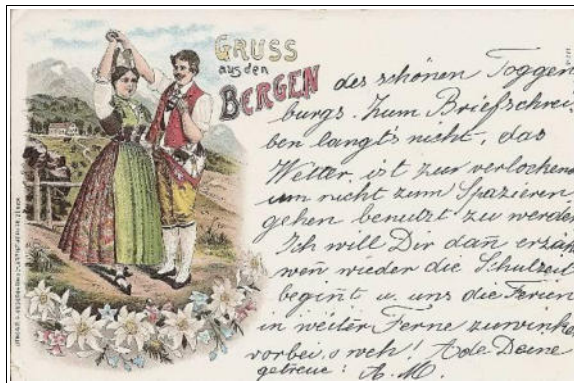 GRUSS
aus den
BERGEN
des schönen Toggen
burgs. Zum Briefschrei
ben langt's nicht, das
Wetter ist zu verlockend
um nicht zum Spazieren
gehen benutzt zu werden
Ich will Dir dañ erzäh
weñ wieder die Schulzeit
begiñt u. uns die Ferien
in weiter Ferne zuwinke
vorbei, o weh! Ade Deine
getreue: A. M.